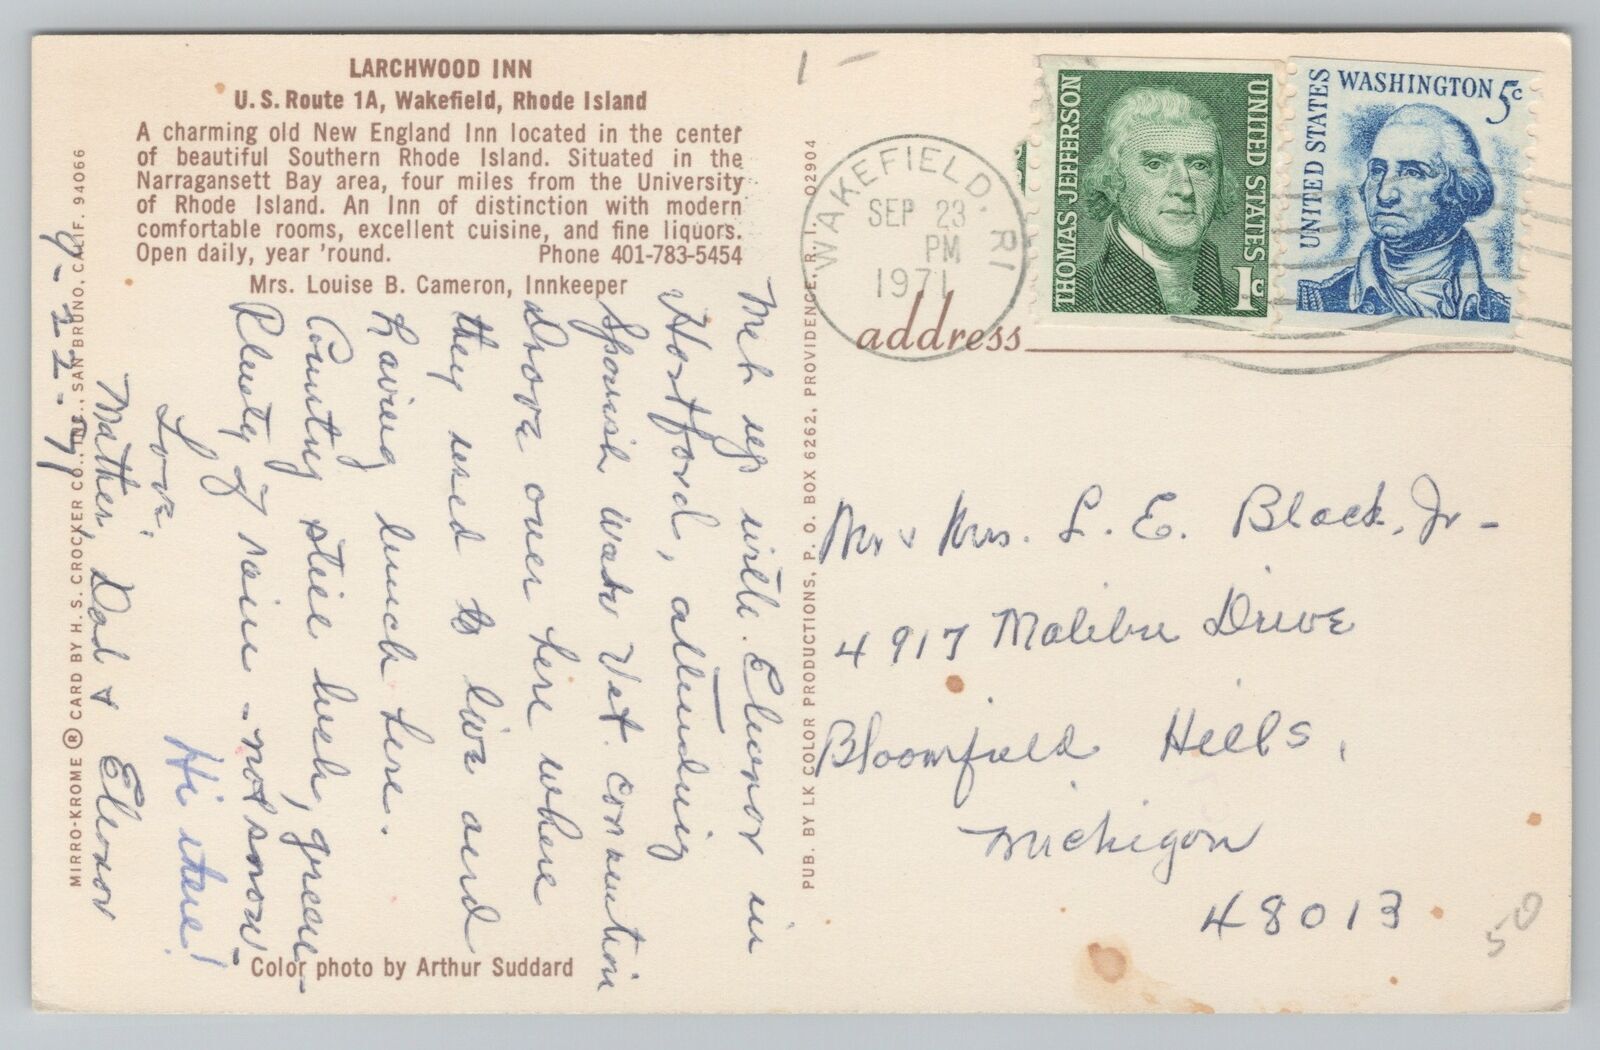 LARCHWOOD INN
U.S. Route 1A, Wakefield, Rhode Island
A charming old New England Inn located in the center
of beautiful Southern Rhode Island. Situated in the
Narragansett Bay area, four miles from the University
of Rhode Island. An Inn of distinction with modern
comfortable rooms, excellent cuisine, and fine liquors.
Open daily, year 'round. Phone 401-783-5454
Mrs. Louise B. Cameron, Innkeeper
Met up with Eleanor in
Hartford, attending
Spanish War Vet. convention
Drove over here where
they used to live and
having lunch here.
Country still lush, green-
Plenty of rain - not snow-
Hi there!
Love,
Mother, Dad & Eleanor
9-22-71
Color photo by Arthur Suddard
MIRRO-KROME ® CARD BY H. S. CROCKER CO., INC., SAN BRUNO, CALIF. 94066
PUB. BY LK COLOR PRODUCTIONS, P. O. BOX 6262, PROVIDENCE, R. I. 02904
1 -
WAKEFIELD, RI
SEP 23
PM
1971
THOMAS JEFFERSON
UNITED STATES
1c
UNITED STATES
WASHINGTON 5c
address
Mr & Mrs. L. E. Black, Jr-
4917 Malibu Drive
Bloomfield Hills,
Michigan
48013
50